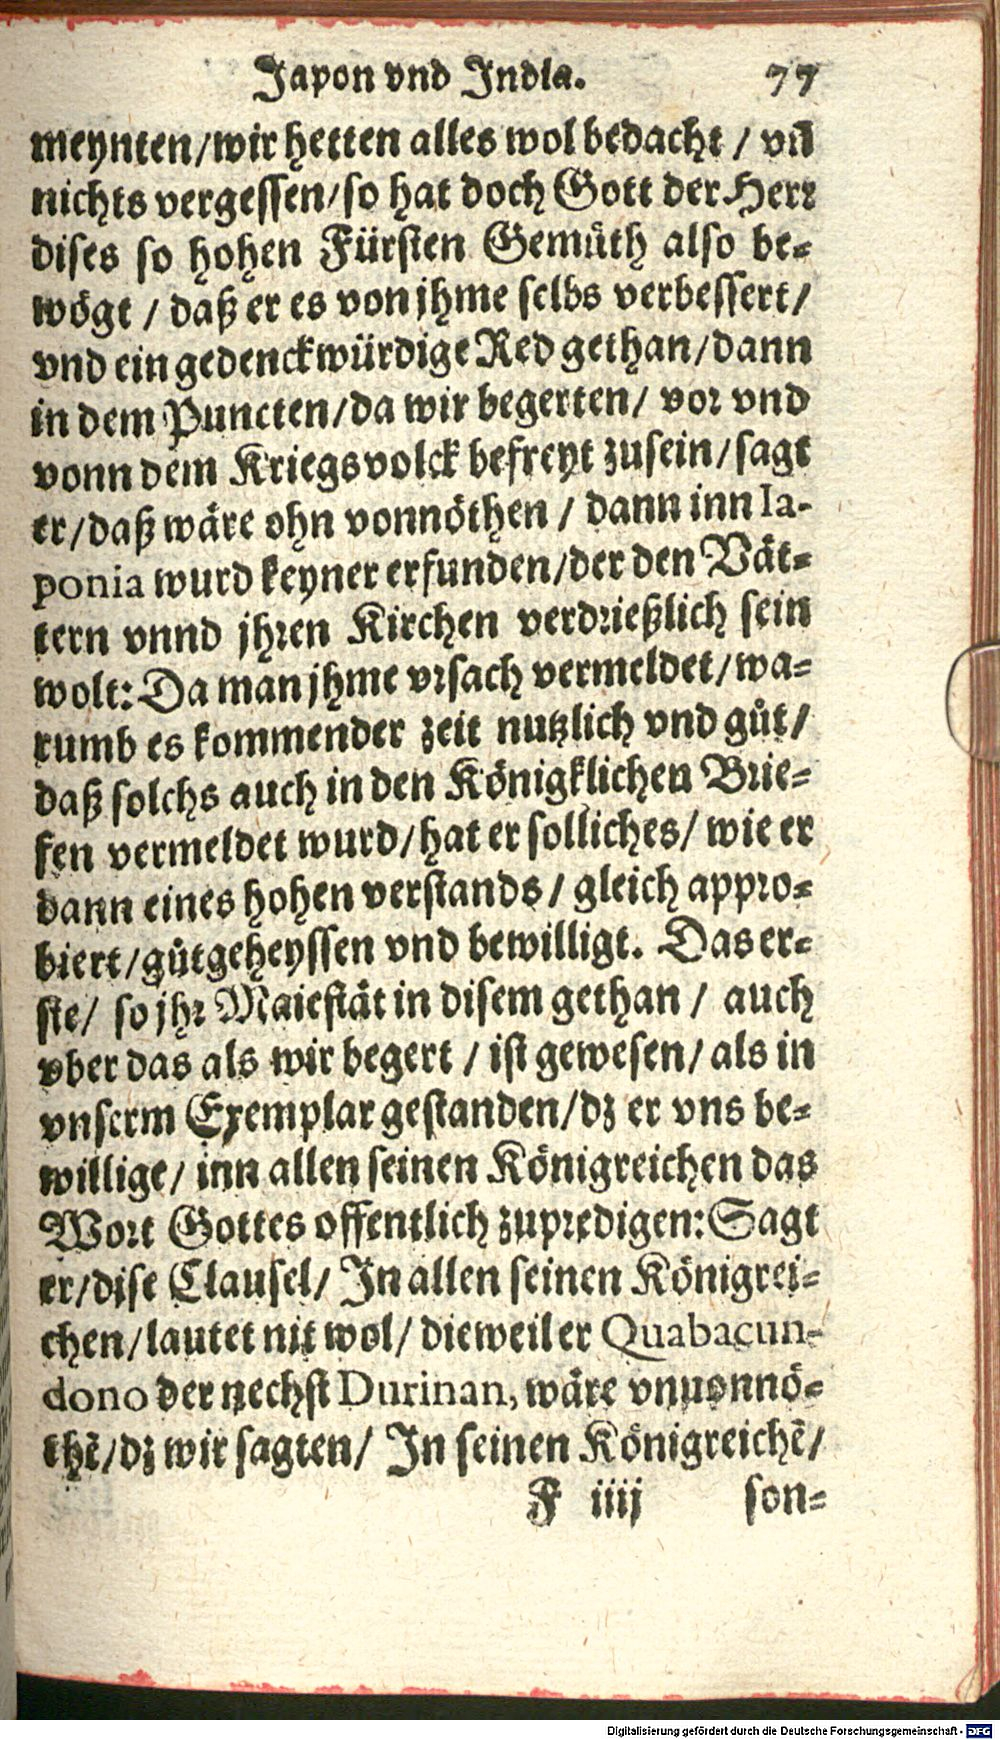 Japon vnd India. 77
meynten/wir hetten alles wol bedacht / vñ
nichts vergessen/so hat doch Gott der Herr
dises so hohen Fürsten Gemüth also be-
wögt / daß er es von jhme selbs verbessert/
vnd ein gedenckwürdige Red gethan/dann
in dem Puncten/da wir begerten/ vor vnd
vonn dem Kriegsvolck befreyt zusein/sagt
er/daß wäre ohn vonnöthen / dann inn Ia-
ponia wurd keyner erfunden/der den Vät-
tern vnnd jhren Kirchen verdrießlich sein
wolt: Da man jhme vrsach vermeldet/wa-
rumb es kommender zeit nutzlich vnd gůt/
daß solchs auch in den Königklichen Brie-
fen vermeldet wurd/hat er solliches/ wie er
dann eines hohen verstands / gleich appro-
biert/gůtgeheyssen vnd bewilligt. Das er-
ste/ so jhr Maiestät in disem gethan / auch
vber das als wir begert / ist gewesen/ als in
vnserm Exemplar gestanden/dz er vns be-
willige/ inn allen seinen Königreichen das
Wort Gottes offentlich zupredigen: Sagt
er/dise Clausel/ In allen seinen Königrei-
chen/lautet nit wol/ dieweil er Quabacun-
dono der nechst Durinan, wäre vnuonnö-
thẽ/dz wir sagten/ In seinen Königreichẽ/
F iiij son-
Digitalisierung gefördert durch die Deutsche Forschungsgemeinschaft - DFG